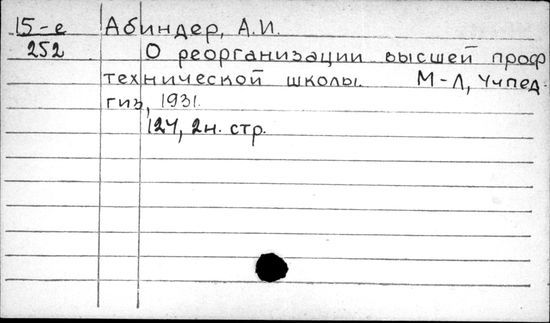 15-е Абиндер, А.И.
252 О реорганизации высшей проф
технической школы. М-Л, Учпед-
гиз, 1931.
124, 2н. стр.